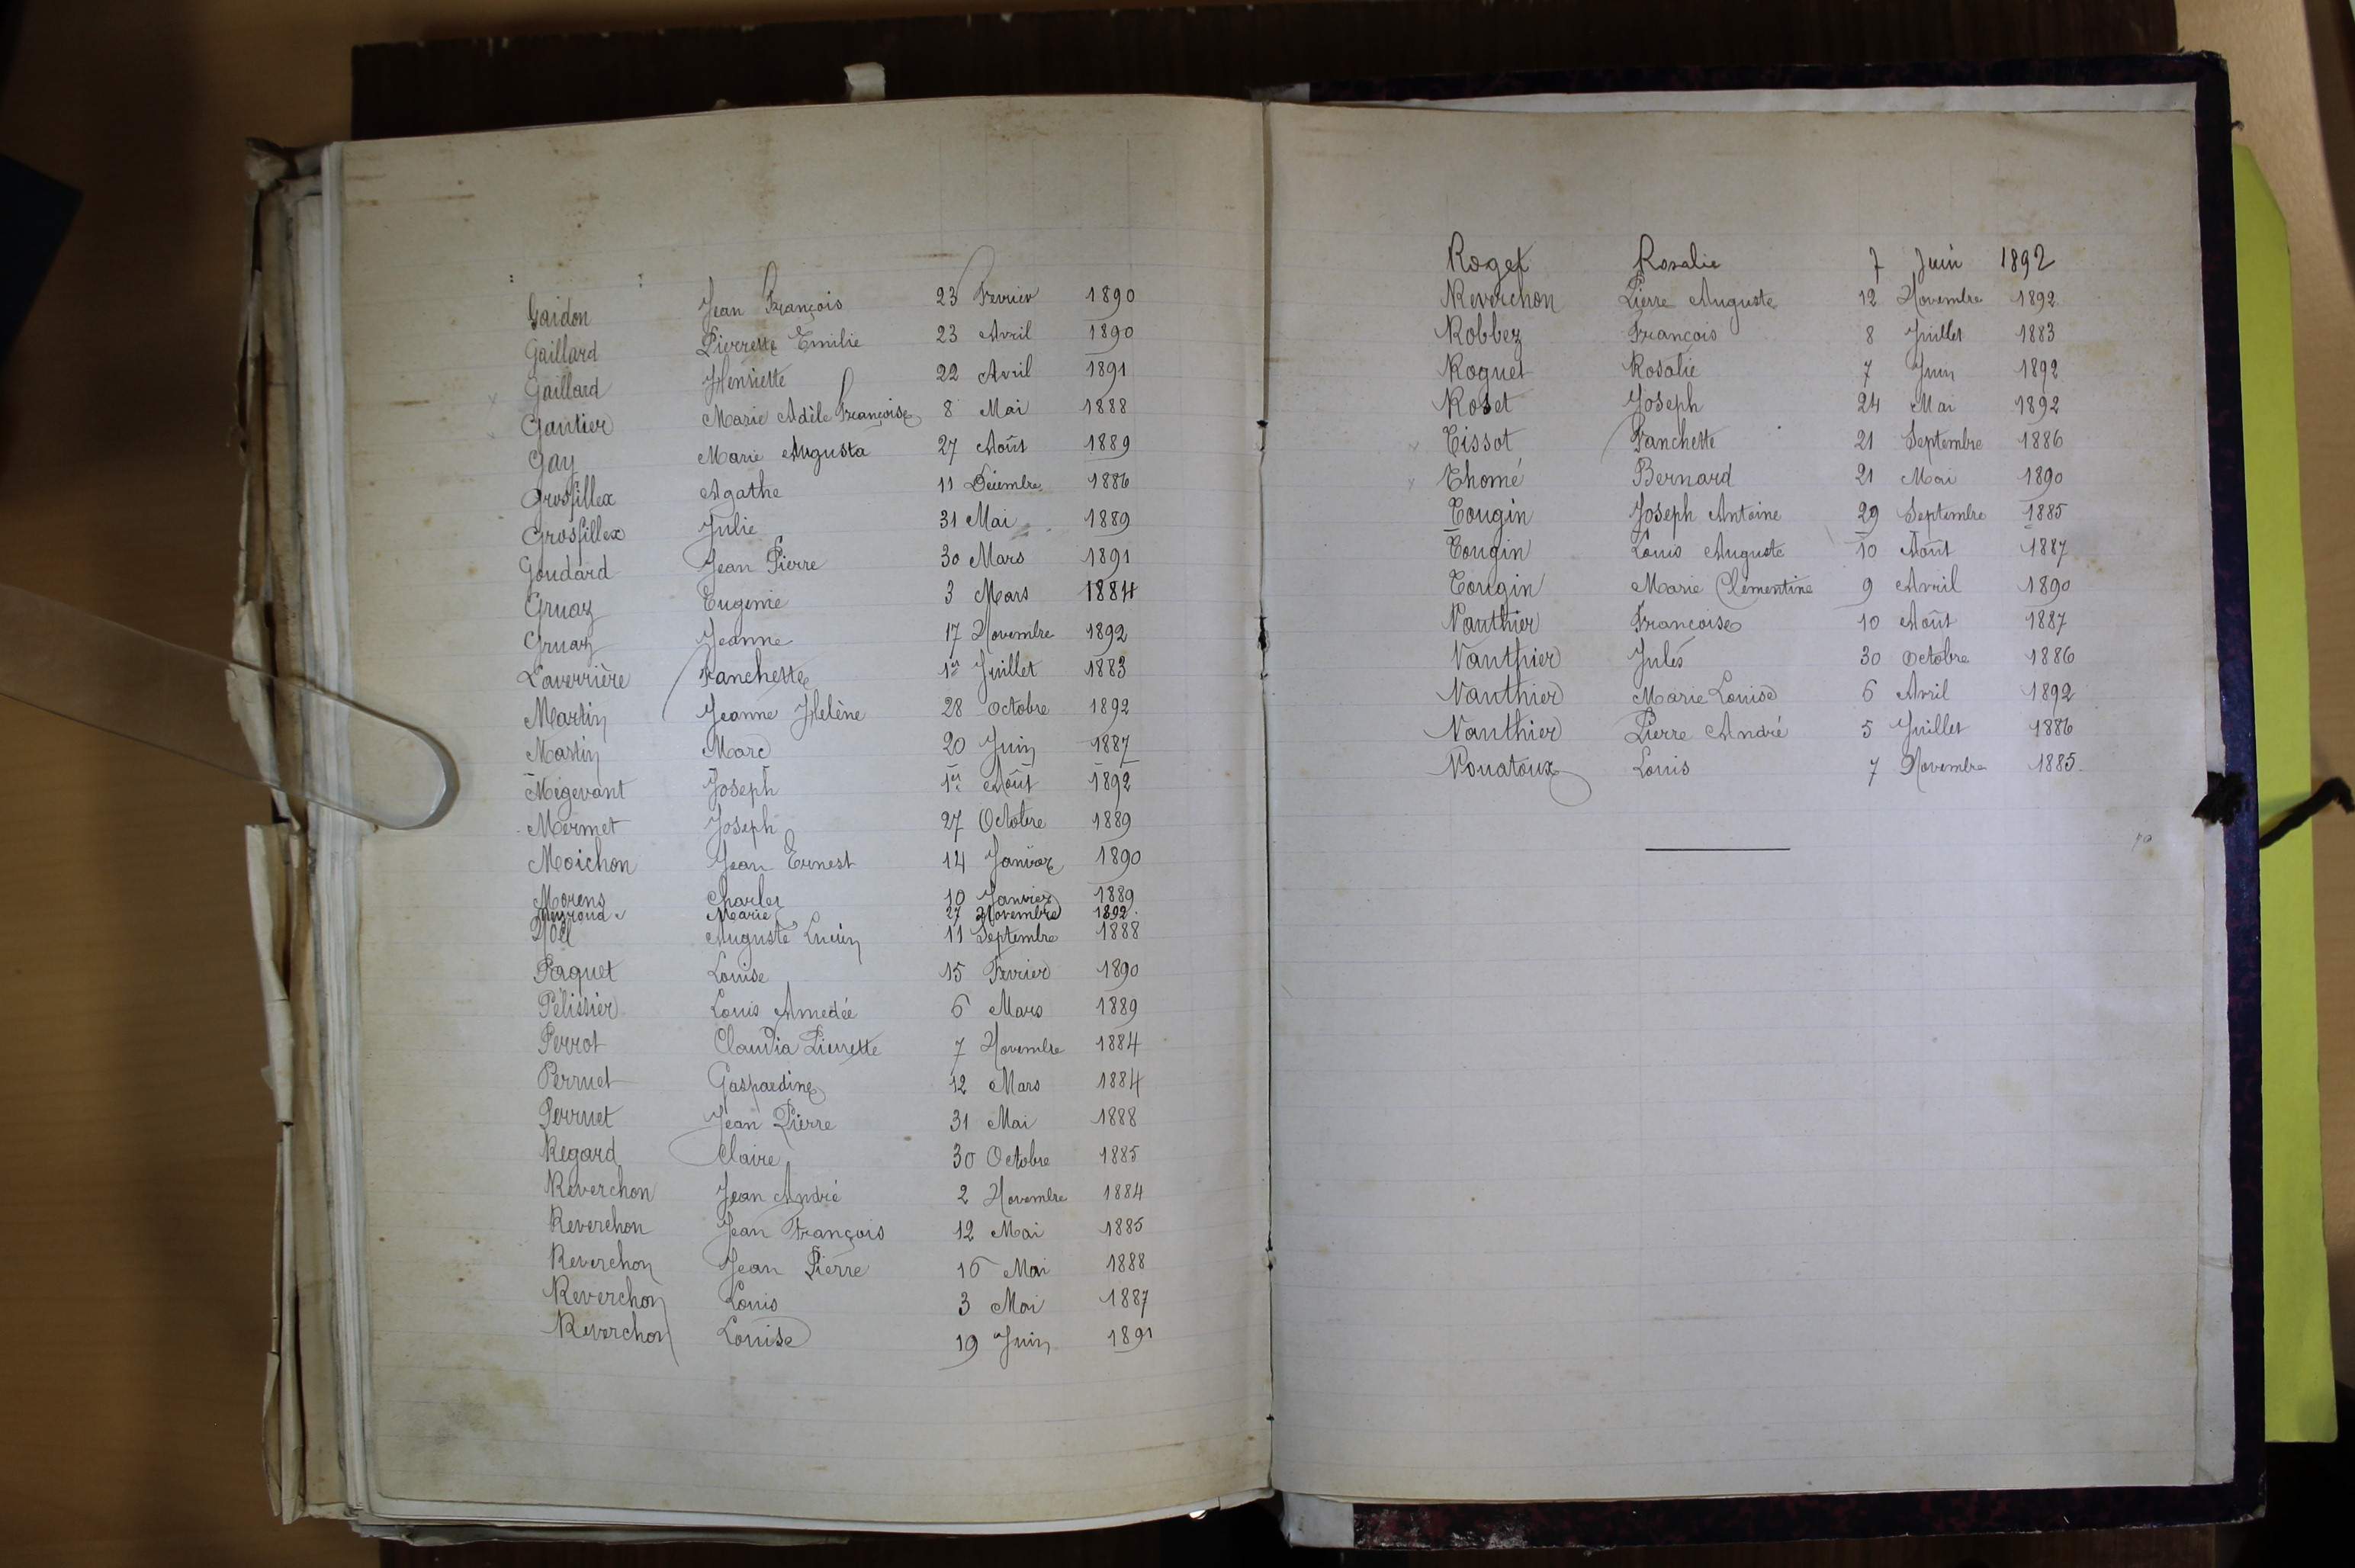 Gaidon Jean François 23 Fevrier 1890
Gaillard Pierrette Emilie 23 Avril 1890
Gaillard Henriette 22 Avril 1891
Gautier Marie Adèle Françoise 8 Mai 1888
Gay Marie Augusta 27 Août 1889
Grosfillex Agathe 11 Décembre 1886
Grosfillex Julie 31 Mai 1889
Goudard Jean Pierre 30 Mars 1891
Gruaz Eugenie 3 Mars 1884
Gruaz Jeanne 17 Novembre 1892
Laverrière Fanchette 1er Juillet 1883
Martin Jeanne Helène 28 Octobre 1892
Martin Marc 20 Juin 1887
Mégevant Joseph 1er Août 1892
Mermet Joseph 27 Octobre 1889
Moichon Jean Ernest 14 Janvier 1890
Morens Charles 10 Janvier 1889
Marie 27 Novembre 1892
Noël Auguste Lucien 11 Septembre 1888
Paquet Louise 15 Fevrier 1890
Pélissier Louis Amedée 6 Mars 1889
Perrot Claudia Pierrette 7 Novembre 1884
Perruet Gaspardine 12 Mars 1884
Perruet Jean Pierre 31 Mai 1888
Regard Claire 30 Octobre 1885
Reverchon Jean André 2 Novembre 1884
Reverchon Jean François 12 Mai 1885
Reverchon Jean Pierre 16 Mai 1888
Reverchon Louis 3 Mai 1887
Reverchon Louise 19 Juin 1891
Roget Rosalie 7 Juin 1892
Reverchon Pierre Auguste 12 Novembre 1892
Robbez François 8 Juillet 1883
Roguet Rosalie 7 Juin 1892
Roset Joseph 24 Mai 1892
Tissot Fanchette 21 Septembre 1886
Thomé Bernard 21 Mai 1890
Tougin Joseph Antoine 29 Septembre 1885
Tougin Louis Auguste 10 Août 1887
Tougin Marie Clémentine 9 Avril 1890
Vauthier Françoise 10 Août 1887
Vauthier Jules 30 Octobre 1886
Vauthier Marie Louise 6 Avril 1892
Vauthier Pierre André 5 Juillet 1886
Vouatoux Louis 7 Novembre 1885